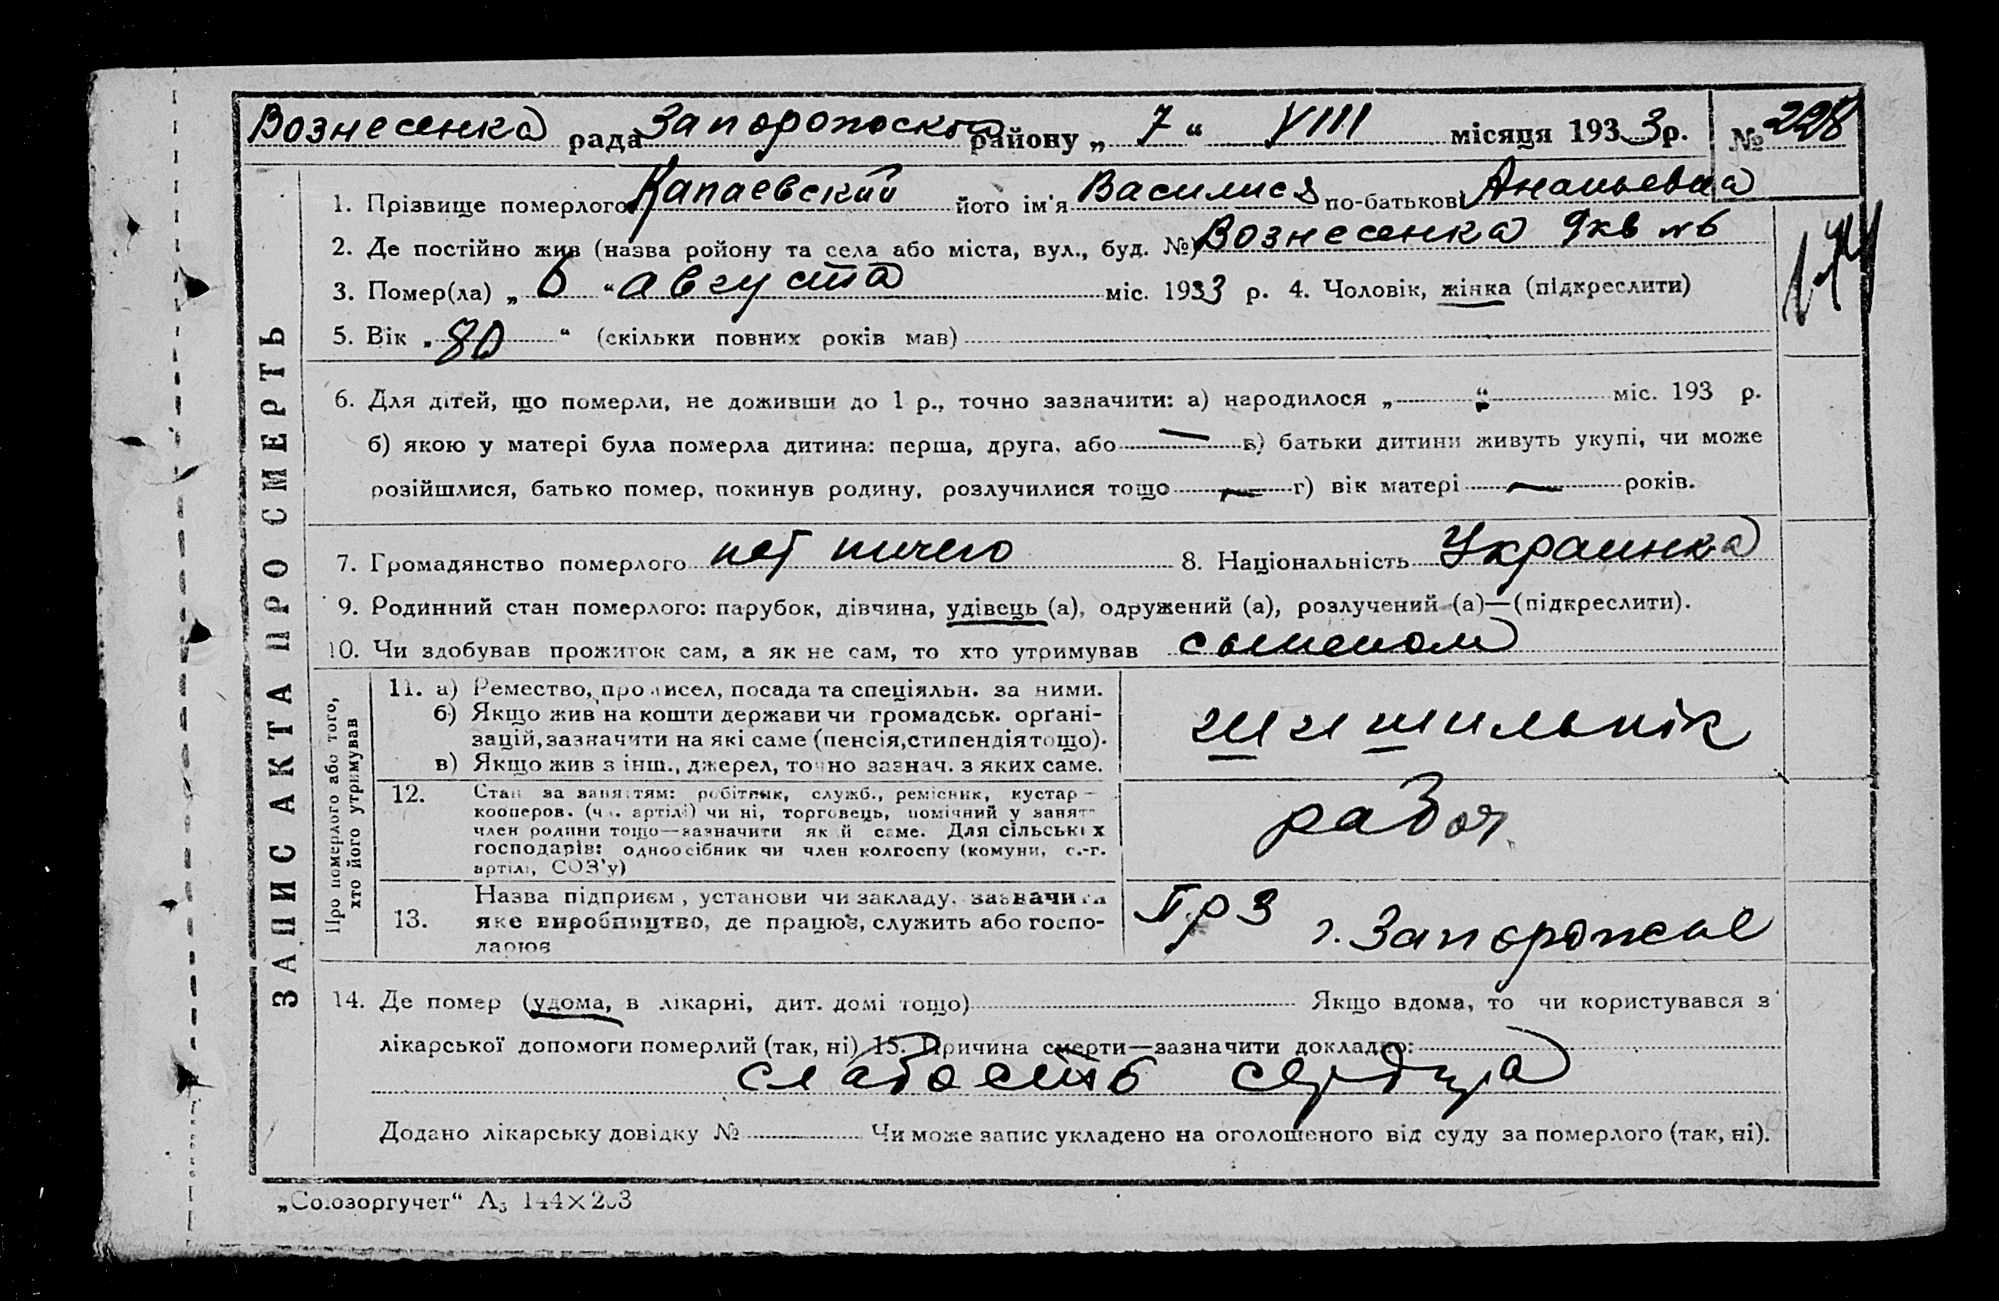 Вознесенка рада Запорожской району „ 7 “ VIII місяця 1933 р. № 228
1. Прізвище померлого Капаевский його ім'я Василиса по-батькові Ананьевна
2. Де постійно жив (назва ройону та села або міста, вул., буд. №) Вознесенка 9 кв № 6
174
3. Помер(ла) „ 6 “ августа міс. 1933 р. 4. Чоловік, жінка (підкреслити)
5. Вік „ 80 “ (скільки повних років мав)
6. Для дітей, що померли, не доживши до 1 р., точно зазначити: а) народилося „ “ міс. 193 р.
б) якою у матері була померла дитина: перша, друга, або — в) батьки дитини живуть укупі, чи може
розійшлися, батько помер, покинув родину, розлучилися тощо — г) вік матері — років.
7. Громадянство померлого нет ничего 8. Національність Украинка
9. Родинний стан померлого: парубок, дівчина, удівець (а), одружений (а), розлучений (а)—(підкреслити).
10. Чи здобував прожиток сам, а як не сам, то хто утримував
ЗАПИС АКТА ПРО СМЕРТЬ
Про померлого або того,
хто його утримував
11. а) Ремество, промисел, посада та спеціяльн. за ними.
б) Якщо жив на кошти держави чи громадськ. орґані-
зацій, зазначити на які саме (пенсія, стипендія тощо).
в) Якщо жив з інш., джерел, точно зазнач. з яких саме.
12. Стан за заняттям: робітник, служб., ремісник, кустар—
кооперов. (чл. артілі) чи ні, торговець, помічний у занятт
член родини тощо—зазначити як й саме. Для сільських
господарів: одноосібник чи член колгоспу (комуни, с.-г.
артілі, СОЗ'у)
рабоч.
13. Назва підприєм, установи чи закладу, зазначити
яке виробництво, де працює, служить або госпо-
дарює
г. Запорожье
14. Де помер (удома, в лікарні, дит. домі тощо) Якщо вдома, то чи користувався з
лікарської допомоги померлий (так, ні) 15. Причина смерти—зазначити докладно:
слабость сердца
Додано лікарську довідку № Чи може запис укладено на оголошеного від суду за померлого (так, ні).
„Союзоргучет“ А5 144×203